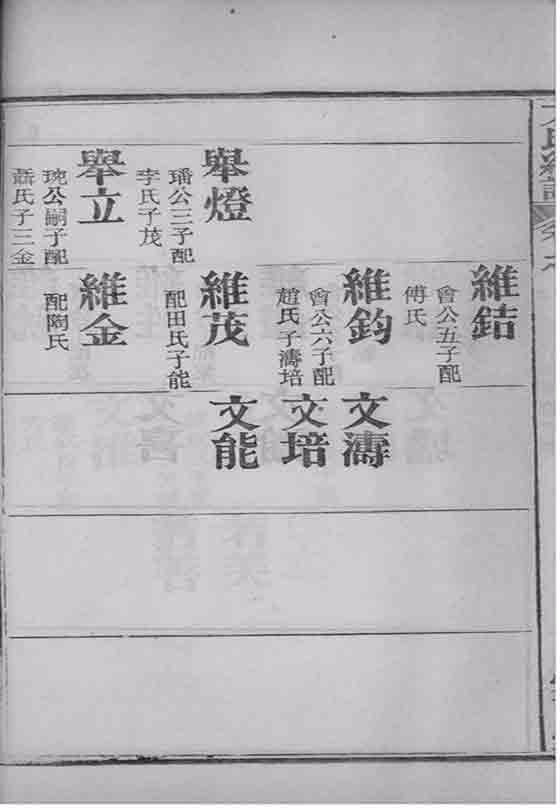 舉燈
璠公三子配
李氏子茂
舉立
琬公嗣子配
氏子三金
維銡
會公五子配
傅氏
維鈞
會公六子配
趙氏子濤培
維茂
配田氏子能
維金
配陶氏
文濤
文培
文能